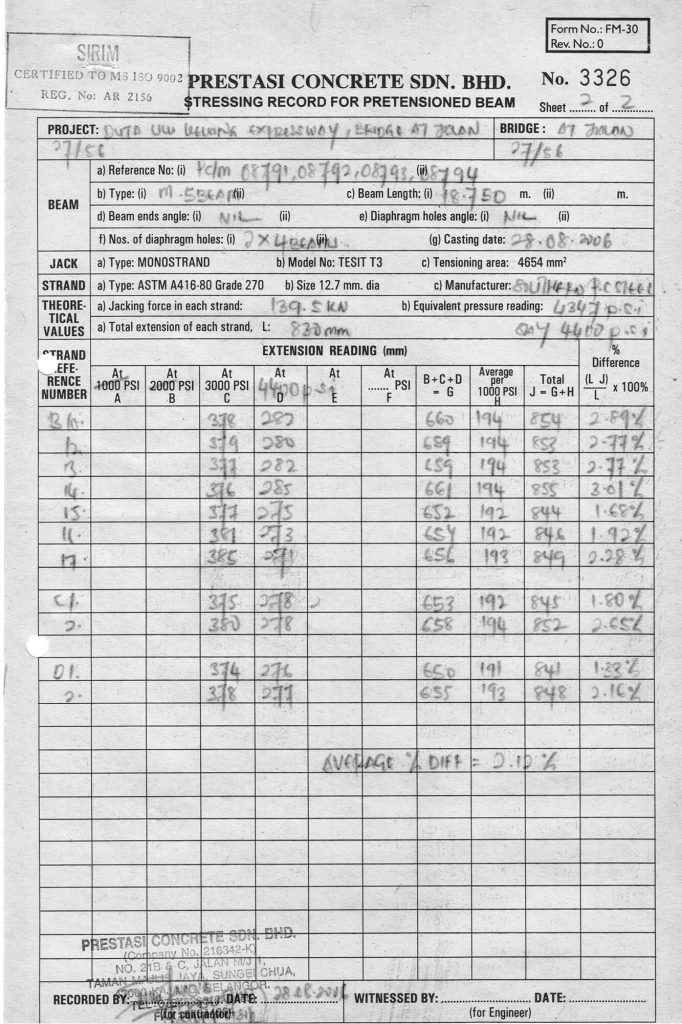 Form No.: FM-30
Rev. No.: 0
SIRIM
CERTIFIED TO MS ISO 9002
REG. No: AR 2156
PRESTASI CONCRETE SDN. BHD.
No. 3326
STRESSING RECORD FOR PRETENSIONED BEAM
Sheet 2 of 2
PROJECT: DUTA ULU KELANG EXPRESSWAY, BRIDGE AT JALAN BRIDGE: AT JALAN
27/56 27/56
BEAM
a) Reference No: (i) 08791, 08792, 08793, (ii) 08794
b) Type: (i) M-5 BEAM (ii) c) Beam Length: (i) 18.750 m. (ii) m.
d) Beam ends angle: (i) NIL (ii) e) Diaphragm holes angle: (i) NIL (ii)
f) Nos. of diaphragm holes: (i) 2 x 4 BEAMS (ii) (g) Casting date: 28.08.2006
JACK a) Type: MONOSTRAND b) Model No: TESIT T3 c) Tensioning area: 4654 mm²
STRAND a) Type: ASTM A416-80 Grade 270 b) Size 12.7 mm. dia c) Manufacturer: SOUTHERN P.C STEEL
THEORETICAL VALUES
a) Jacking force in each strand: 139.5 KN b) Equivalent pressure reading: 4347 p.s.i
a) Total extension of each strand, L: 830 mm SAY 4400 p.s.i
STRAND REFERENCE NUMBER
EXTENSION READING (mm)
% Difference
At 1000 PSI A At 2000 PSI B At 3000 PSI C At 4400 psi D At E At ....... PSI F B+C+D = G Average per 1000 PSI H Total J = G+H (L J) / L x 100%
B 10. 378 282 660 194 854 2.89%
12. 379 280 659 194 853 2.77%
13. 377 282 659 194 853 2.77%
14. 376 285 661 194 855 3.01%
15. 377 275 652 192 844 1.68%
16. 381 273 654 192 846 1.92%
17. 385 271 656 193 849 2.28%
C1. 375 278 653 192 845 1.80%
2. 380 278 658 194 852 2.65%
D1. 374 276 650 191 841 1.33%
2. 378 277 655 193 848 2.16%
AVERAGE % DIFF = 2.12 %
PRESTASI CONCRETE SDN. BHD.
(Company No. 216342-K)
NO. 21B & C, JALAN M/J 1,
TAMAN MAJLIS JAYA, SUNGEI CHUA,
KAJANG, SELANGOR.
RECORDED BY: DATE: 28-8-2006 WITNESSED BY: DATE:
(for contractor) (for Engineer)